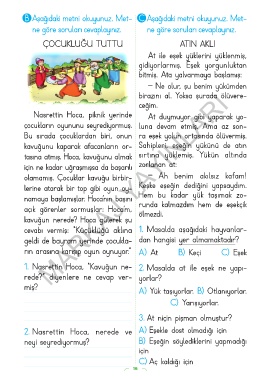 B Aşağıdaki metni okuyunuz. Met-
ne göre soruları cevaplayınız.
ÇOCUKLUĞU TUTTU
Nasrettin Hoca, piknik yerinde
çocukların oyununu seyrediyormuş.
Bu sırada çocuklardan biri, onun
kavuğunu kaparak afacanların or-
tasına atmış. Hoca, kavuğunu almak
için ne kadar uğraşmışsa da başarılı
olamamış. Çocuklar kavuğu birbir-
lerine atarak bir top gibi oyun oy-
namaya başlamışlar. Hocanın başını
açık görenler sormuşlar: Hocam,
kavuğun nerede? Hoca gülerek şu
cevabı vermiş: "Küçüklüğü aklına
geldi de bayram yerinde çocukla-
rın arasına karışıp oyun oynuyor."
1. Nasrettin Hoca, "Kavuğun ne-
rede?" diyenlere ne cevap ver-
miş?
2. Nasrettin Hoca, nerede ve
neyi seyrediyormuş?
C Aşağıdaki metni okuyunuz. Met-
ne göre soruları cevaplayınız.
ATIN AKLI
At ile eşek yüklerini yüklenmiş,
gidiyorlarmış. Eşek yorgunluktan
bitmiş. Ata yalvarmaya başlamış:
– Ne olur, şu benim yükümden
birazını al. Yoksa şurada ölüvere-
ceğim.
At duymuyor gibi yaparak yo-
luna devam etmiş. Ama az son-
ra eşek yolun ortasında ölüvermiş.
Sahipleri, eşeğin yükünü de atın
sırtına yüklemiş. Yükün altında
zorlanan at:
– Ah benim akılsız kafam!
Keşke eşeğin dediğini yapsaydım.
Hem bu kadar yük taşımak zo-
runda kalmazdım hem de eşekçik
ölmezdi.
1. Masalda aşağıdaki hayvanlar-
dan hangisi yer almamaktadır?
A) At B) Keçi C) Eşek
2. Masalda at ile eşek ne yapı-
yorlar?
A) Yük taşıyorlar. B) Otlanıyorlar.
C) Yarışıyorlar.
3 At niçin pişman olmuştur?
A) Eşekle dost olmadığı için
B) Eşeğin söylediklerini yapmadığı
için
C) Aç kaldığı için